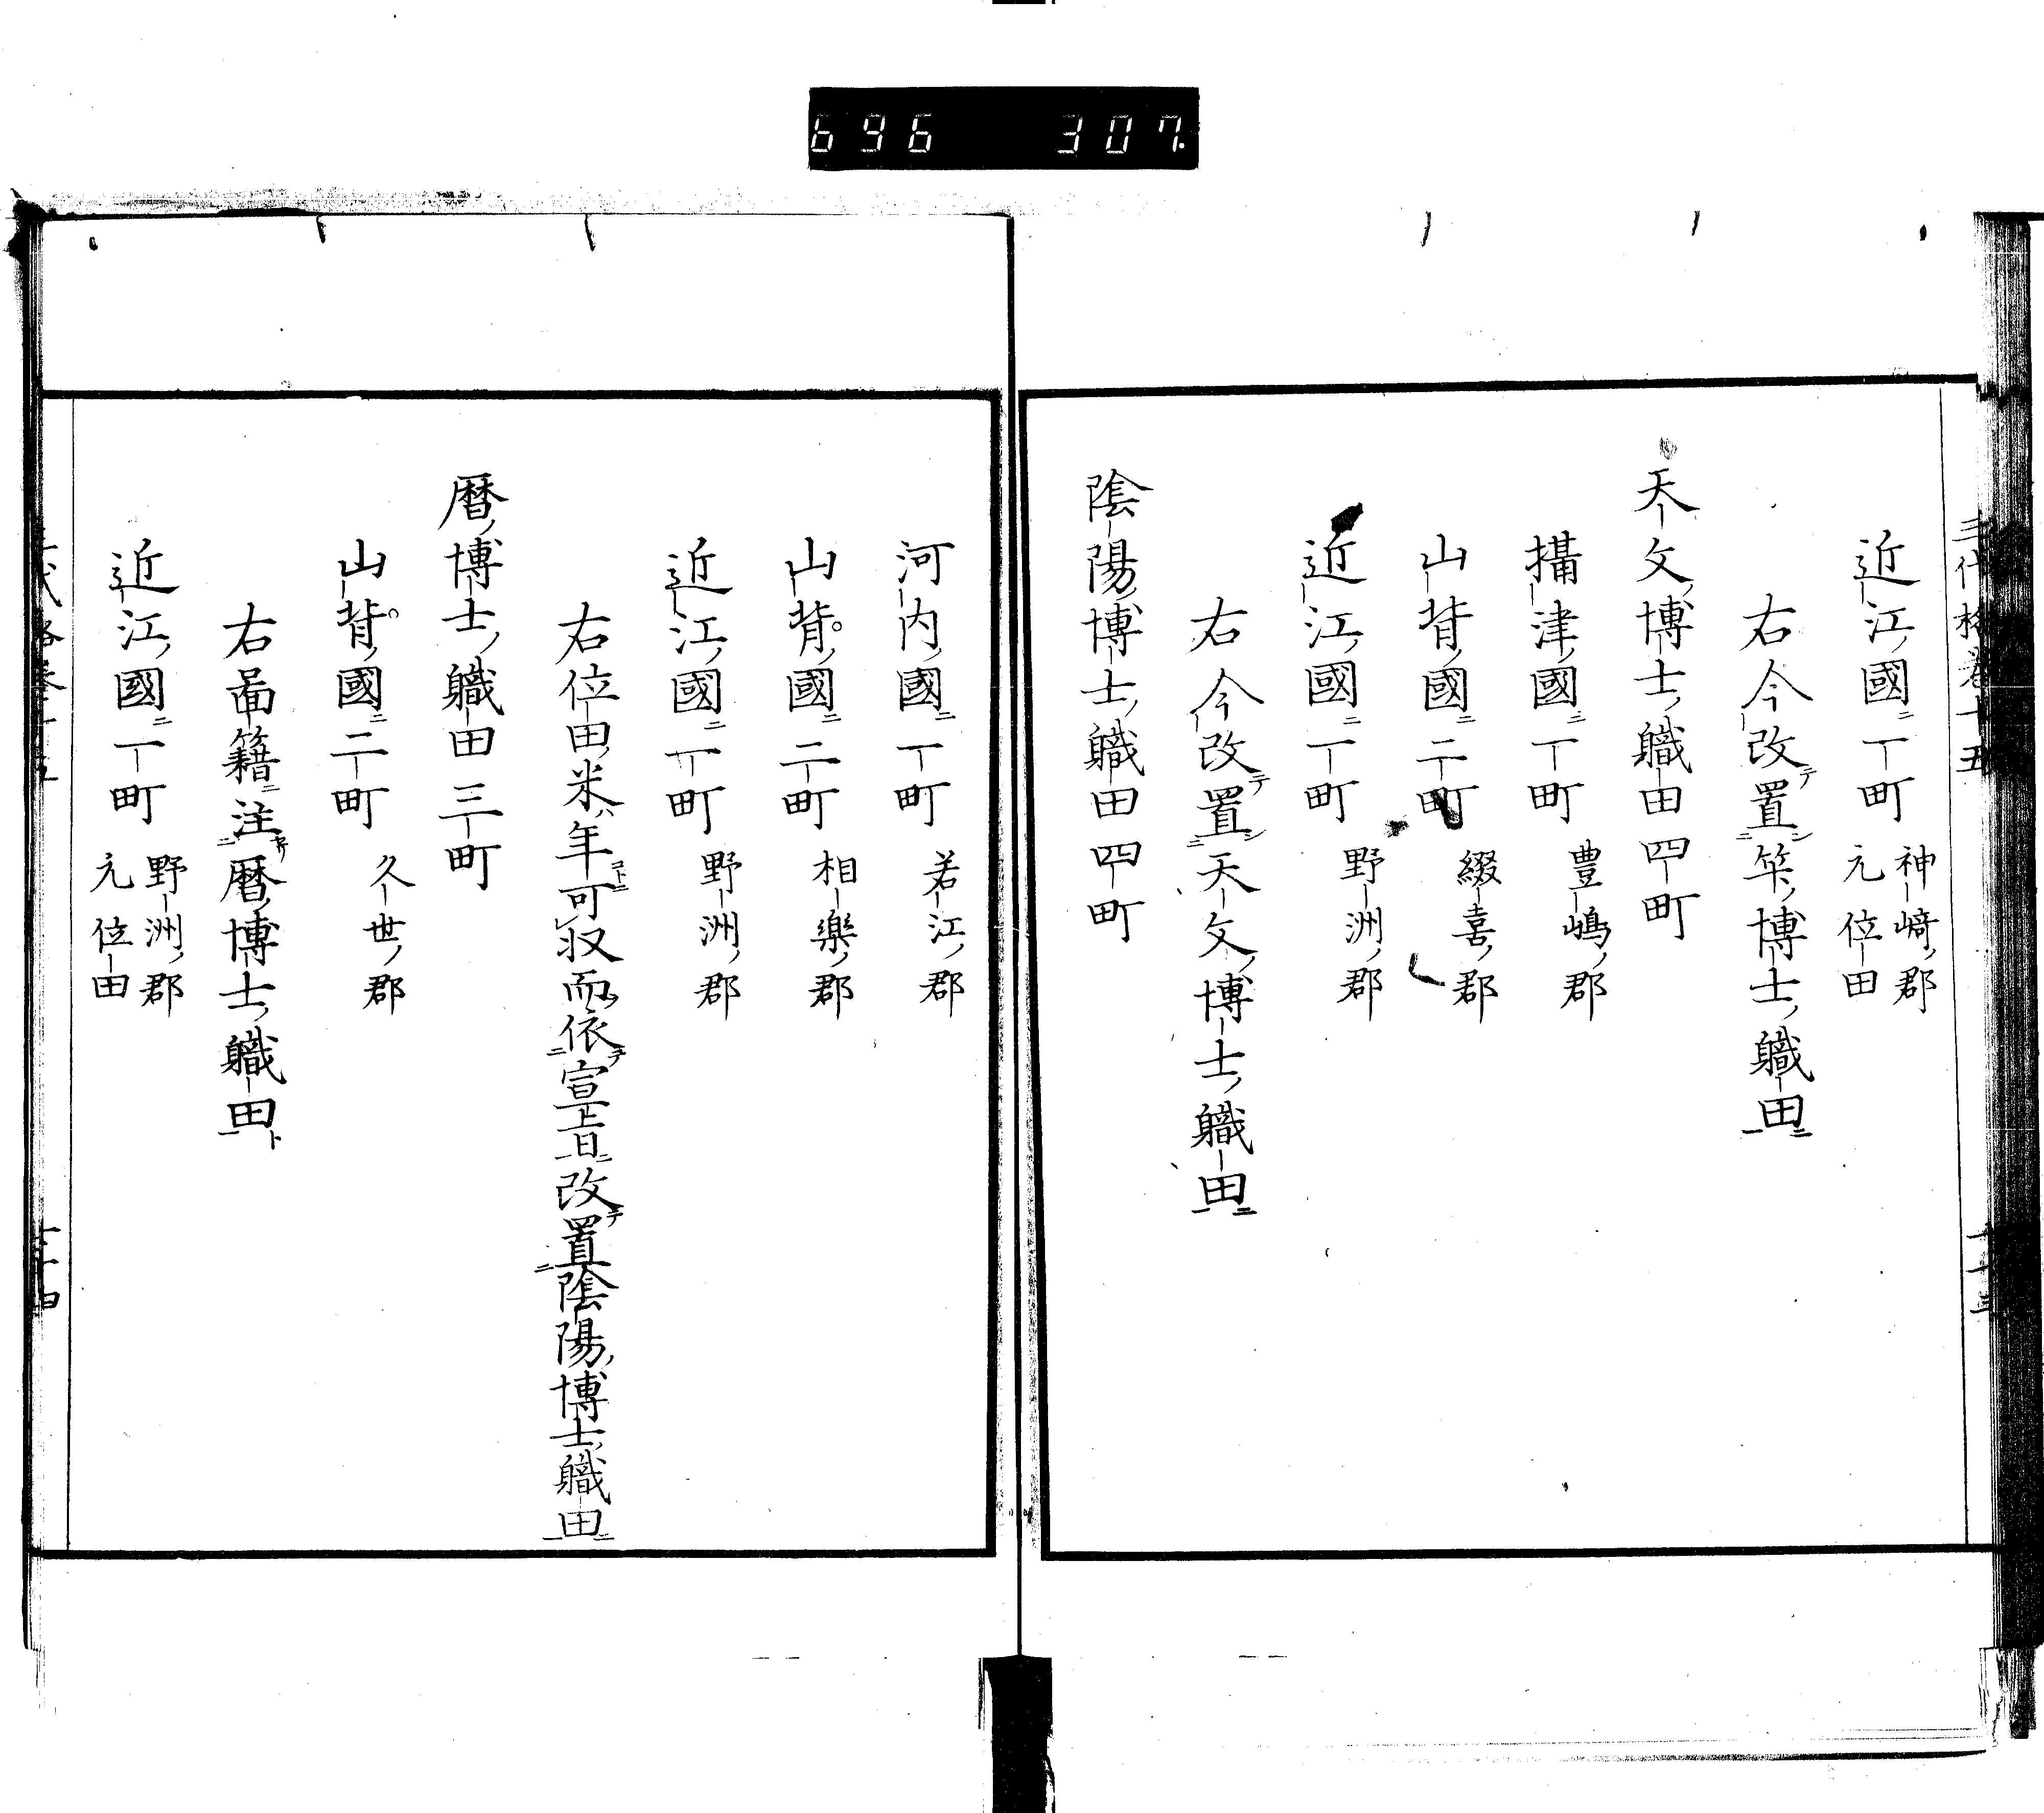 696 307
三代格卷十五
近江國一町 神﨑郡 元位田
右今改置笇博士職田
天文博士職田四町
攝津國一町 豊嶋郡
山背國二町 綴喜郡
近江國一町 野洲郡
右今改置天文博士職田
陰陽博士職田四町
河内國一町 若江郡
山背國二町 相樂郡
近江國一町 野洲郡
右位田米年可収而依宣旨改置陰陽博士職田
暦博士職田三町
山背國二町 久世郡
右啚籍注暦博士職田
近江國一町 野洲郡 元位田